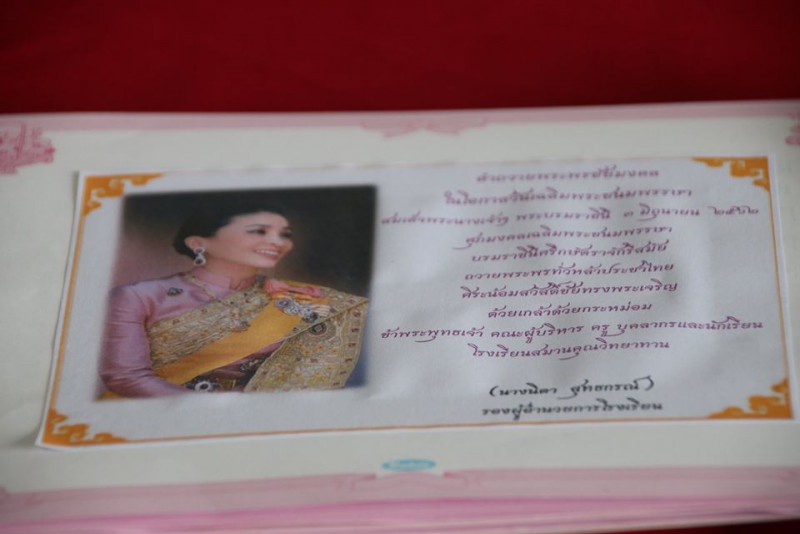 คำถวายพระพรชัยมงคล
ในโอกาสวันเฉลิมพระชนมพรรษา
สมเด็จพระนางเจ้าฯ พระบรมราชินี ๓ มิถุนายน ๒๕๖๒
ศุภมงคลเฉลิมพระชนมพรรษา
บรมราชินีศรีกษัตราจักรีสมัย
ถวายพระพรทั่วหล้าประชาไทย
ศิระน้อมสวัสดิ์ชัยทรงพระเจริญ
ด้วยเกล้าด้วยกระหม่อม
ข้าพระพุทธเจ้า คณะผู้บริหาร ครู บุคลากรและนักเรียน
โรงเรียนสมานคุณวิทยาทาน
(นางนิตา สุทธกรณ์)
รองผู้อำนวยการโรงเรียน